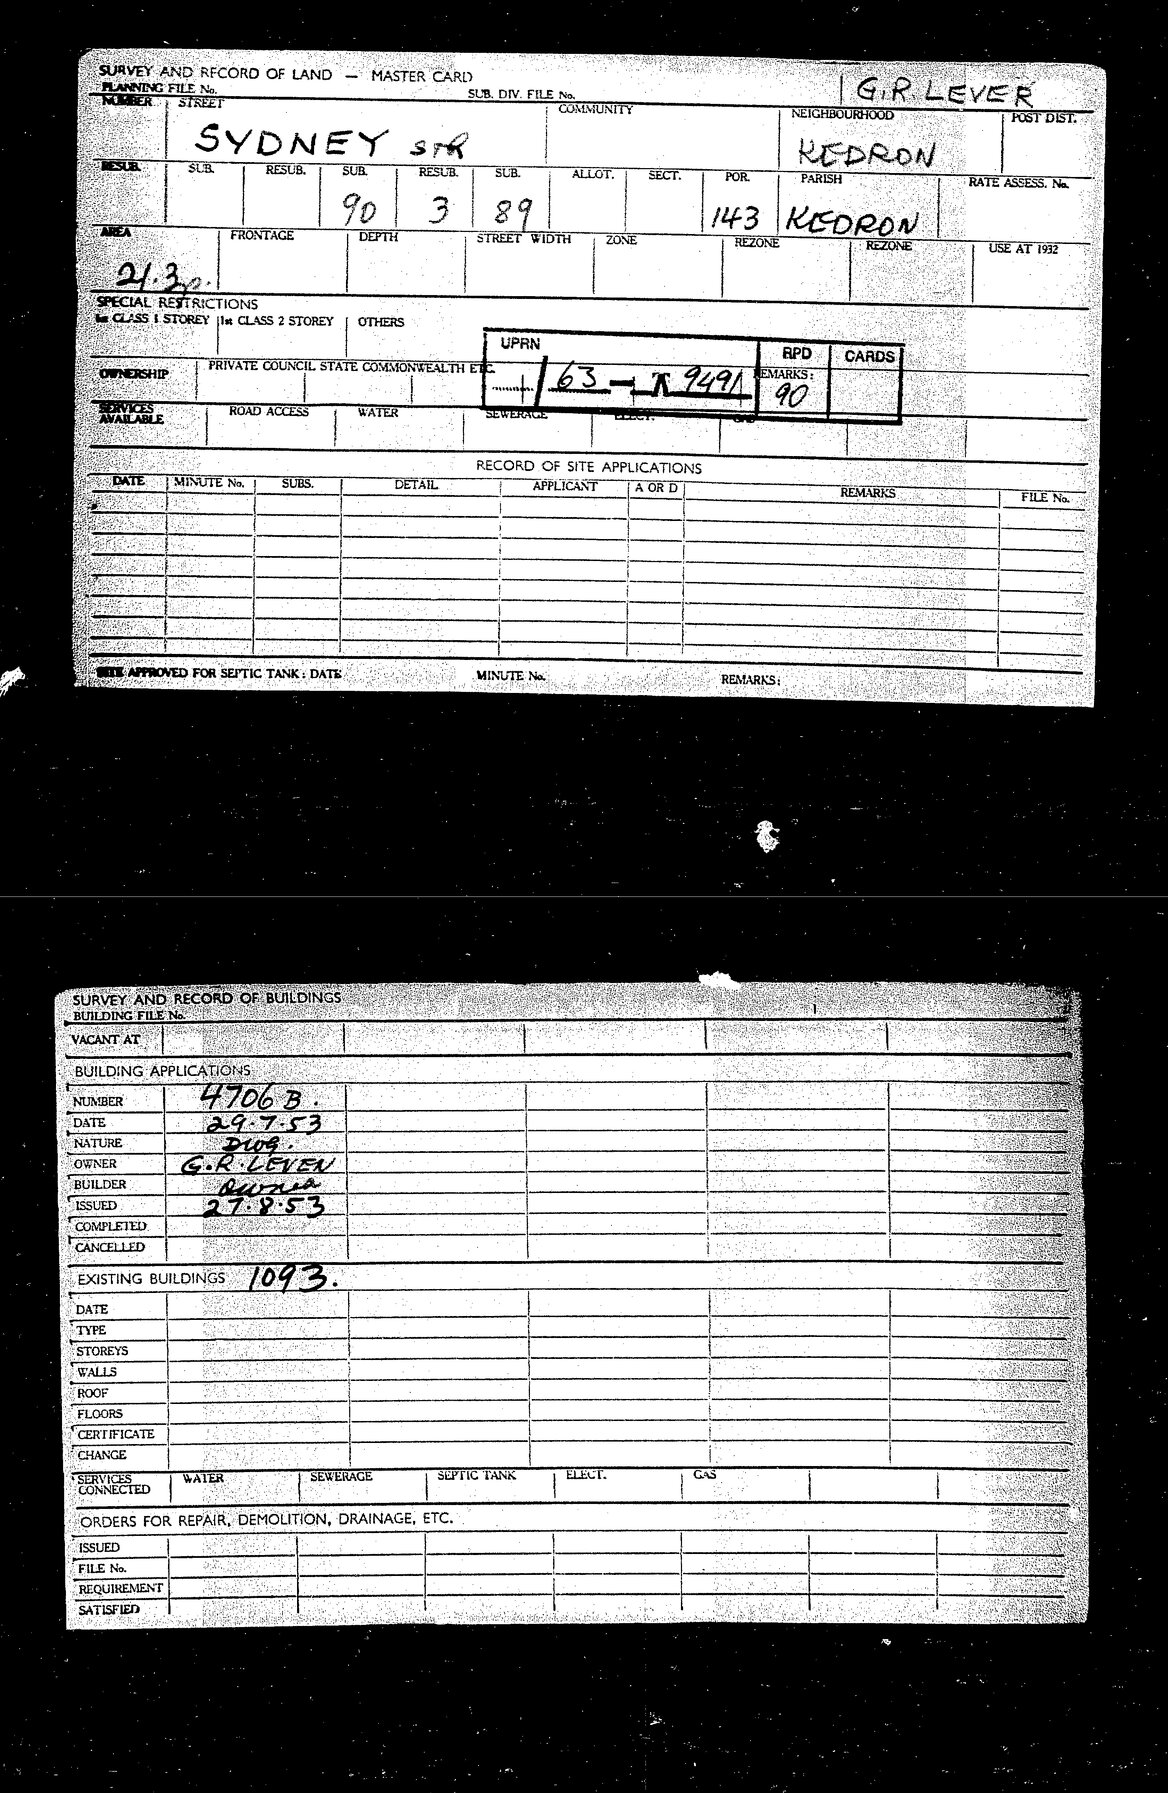 SURVEY AND RECORD OF LAND — MASTER CARD
G.R. LEVER
PLANNING FILE No. SUB. DIV. FILE No.
NUMBER STREET COMMUNITY NEIGHBOURHOOD POST DIST.
SYDNEY STR KEDRON
RESUB. SUB. RESUB. SUB. RESUB. SUB. ALLOT. SECT. POR. PARISH RATE ASSESS. No.
90 3 89 143 KEDRON
AREA FRONTAGE DEPTH STREET WIDTH ZONE REZONE REZONE USE AT 1932
21.3p.
SPECIAL RESTRICTIONS
1st CLASS 1 STOREY 1st CLASS 2 STOREY OTHERS
UPRN RPD CARDS
OWNERSHIP PRIVATE COUNCIL STATE COMMONWEALTH ETC. REMARKS:
63 — 9491 90
SERVICES AVAILABLE ROAD ACCESS WATER SEWERAGE ELECT. GAS
RECORD OF SITE APPLICATIONS
DATE MINUTE No. SUBS. DETAIL APPLICANT A OR D REMARKS FILE No.
SITE APPROVED FOR SEPTIC TANK: DATE MINUTE No. REMARKS:
SURVEY AND RECORD OF BUILDINGS
BUILDING FILE No.
VACANT AT
BUILDING APPLICATIONS
NUMBER 4706 B.
DATE 29.7.53
NATURE Dwg.
OWNER G.R. LEVEN
BUILDER Owner
ISSUED 27.8.53
COMPLETED
CANCELLED
EXISTING BUILDINGS 1093.
DATE
TYPE
STOREYS
WALLS
ROOF
FLOORS
CERTIFICATE
CHANGE
SERVICES CONNECTED WATER SEWERAGE SEPTIC TANK ELECT. GAS
ORDERS FOR REPAIR, DEMOLITION, DRAINAGE, ETC.
ISSUED
FILE No.
REQUIREMENT
SATISFIED